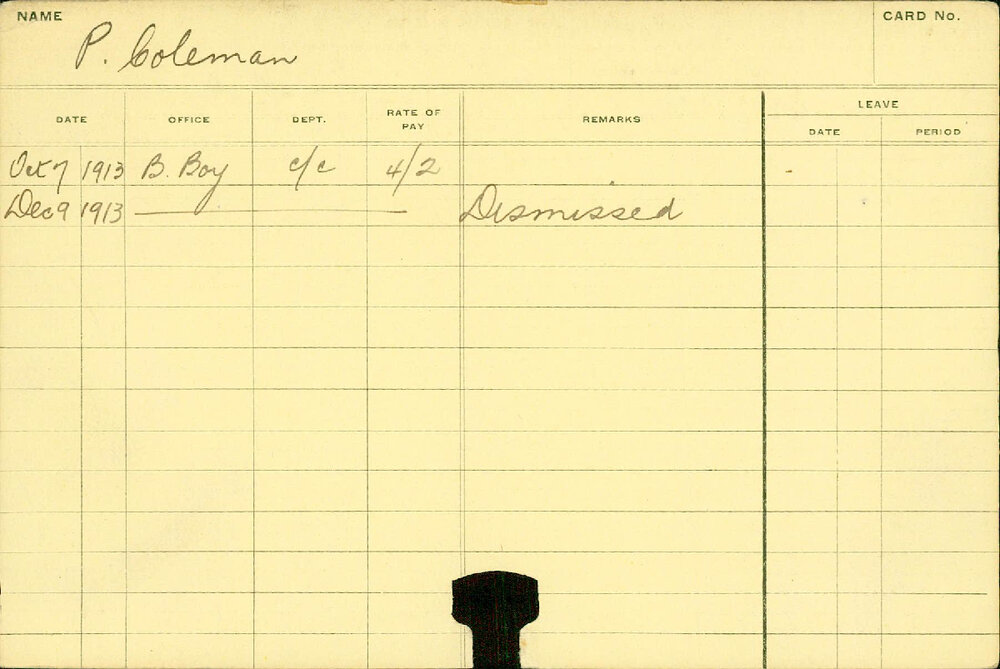 NAME CARD No.
P. Coleman
DATE OFFICE DEPT. RATE OF PAY REMARKS LEAVE
DATE PERIOD
Oct 7 1913 B. Boy c/c 4/2
Dec 9 1913 Dismissed